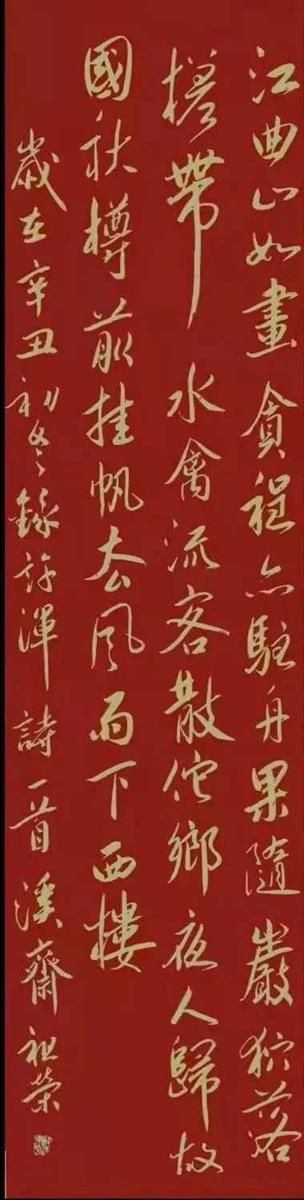 江曲山如畫貪程亦駐舟果隨巖狖落
槎帶水禽流客散他鄉夜人歸故
國秋樽前挂帆去風雨下西樓
歲在辛丑初冬錄許渾詩一首溪齋祖榮